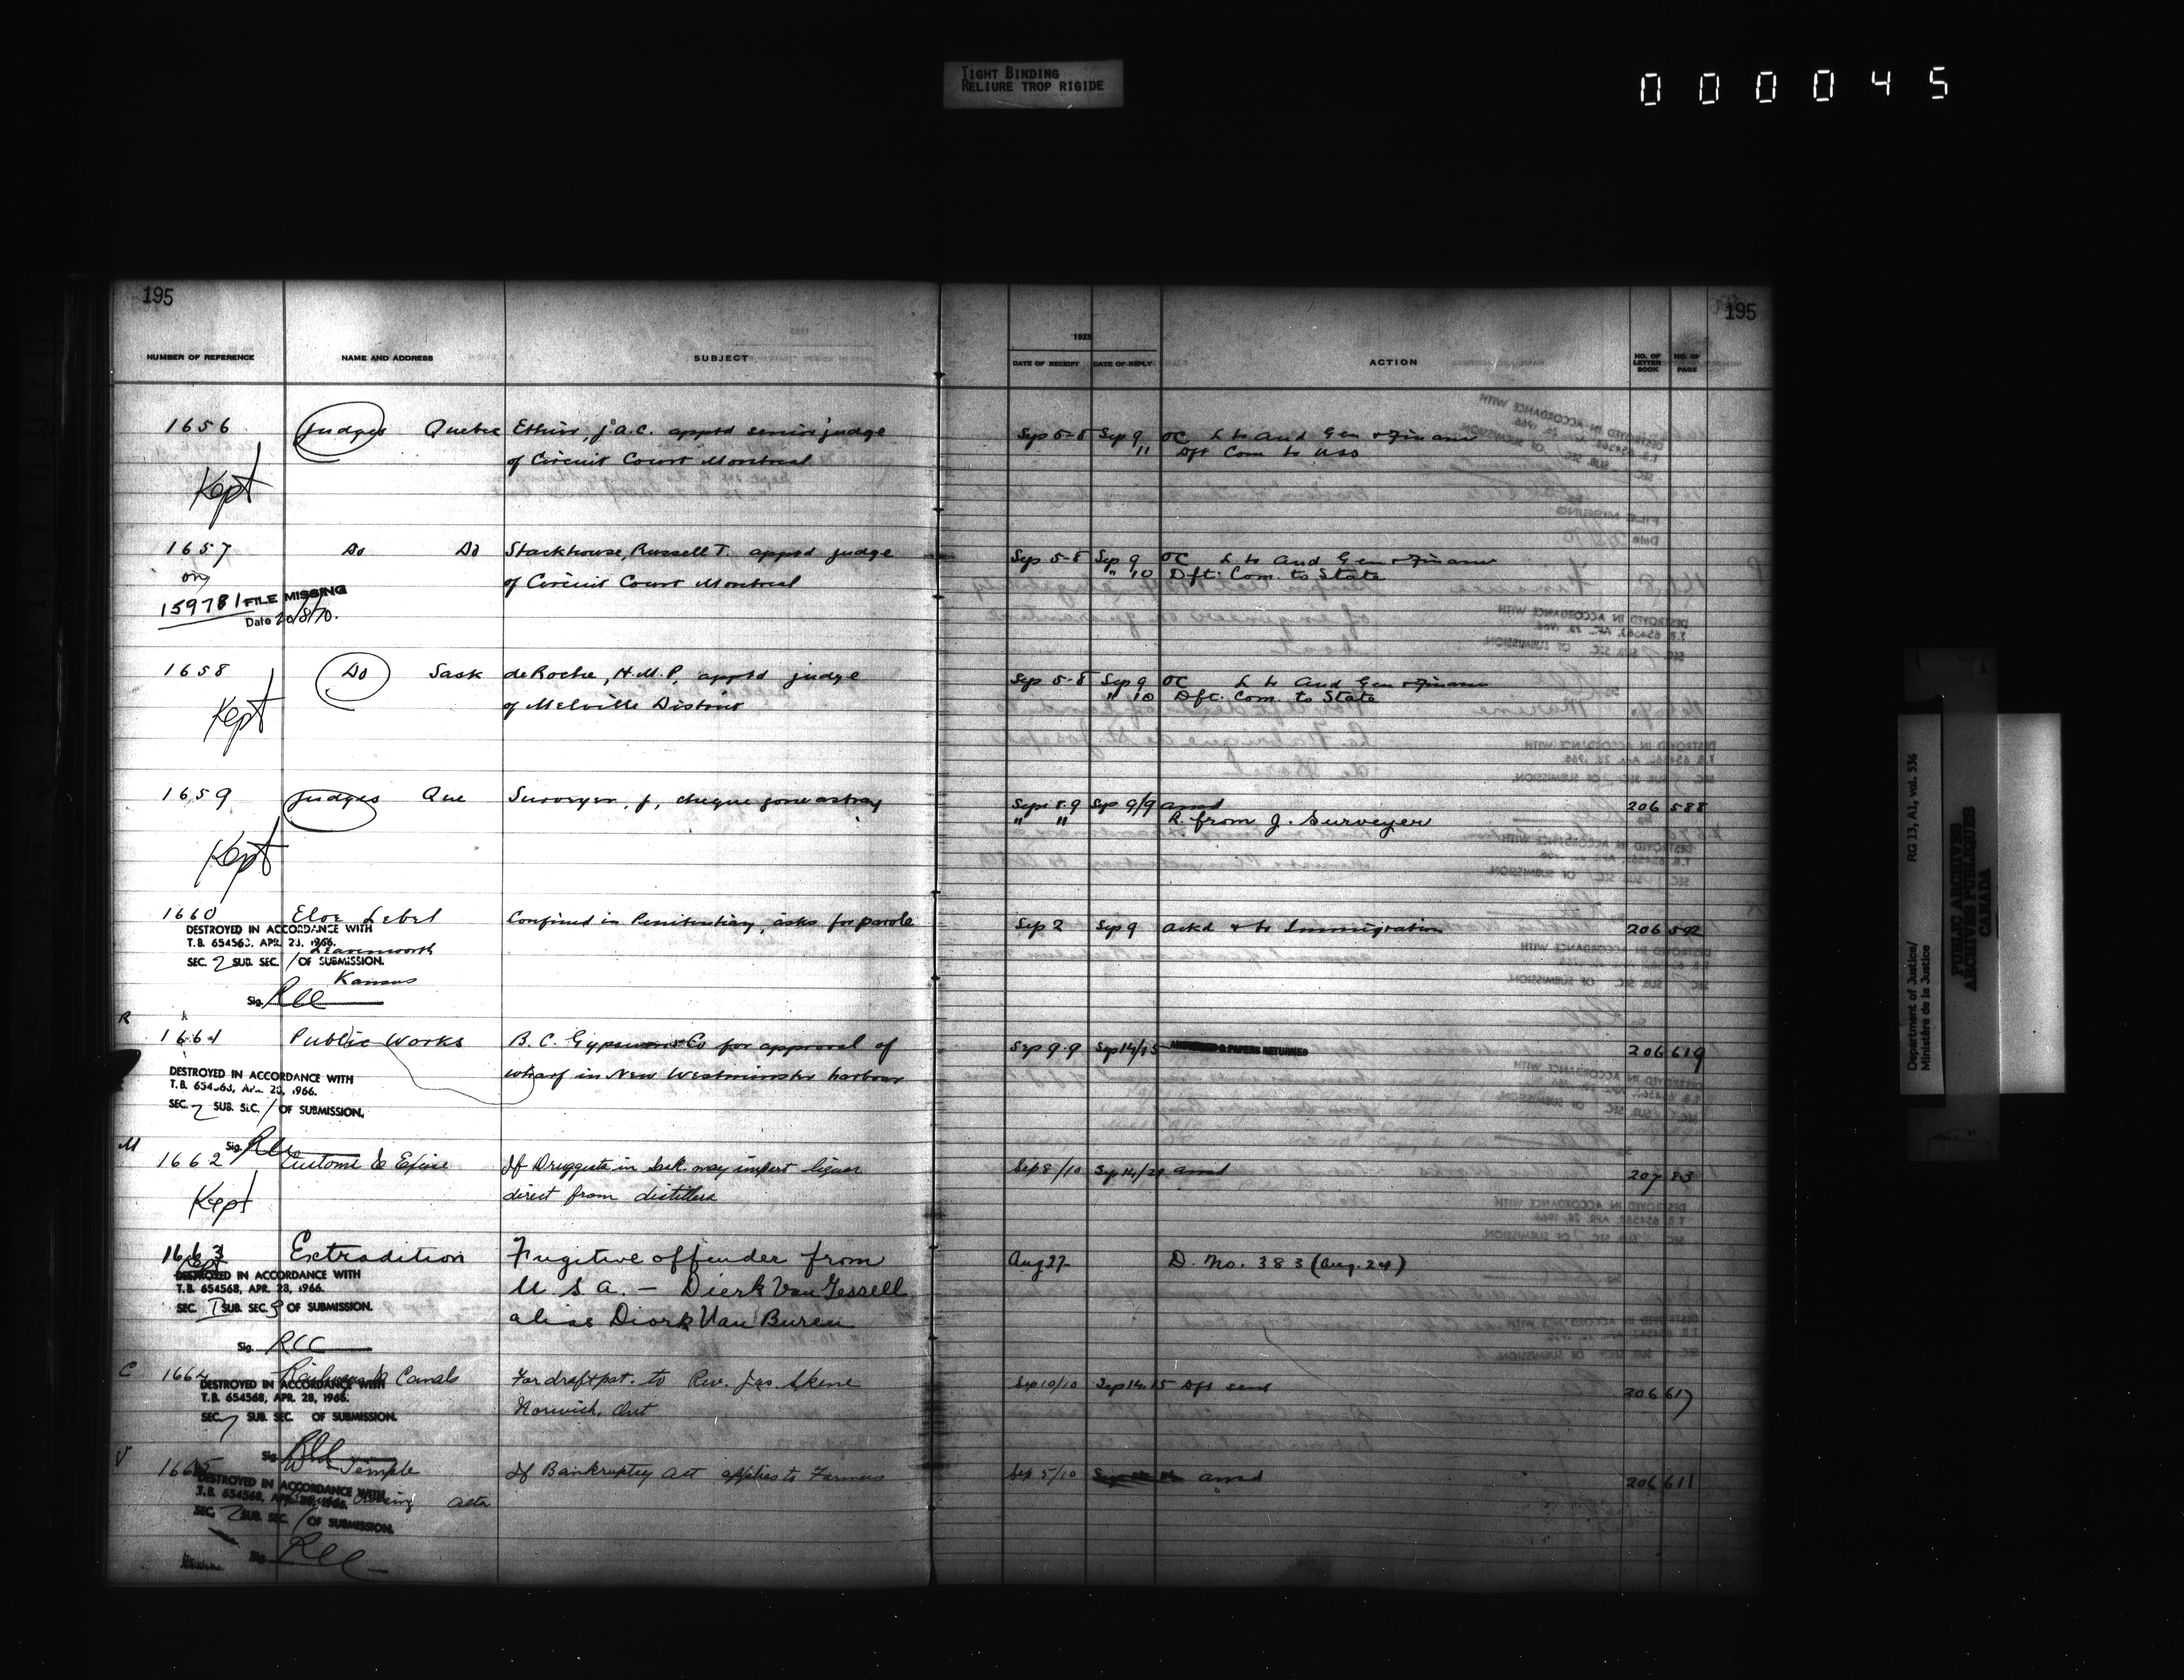 TIGHT BINDING
RELIURE TROP RIGIDE
000045
195
195
NUMBER OF REFERENCE NAME AND ADDRESS SUBJECT
DATE OF RECEIPT DATE OF REPLY ACTION NO. OF LETTER BOOK NO. OF PAGE
1656 Judges Quebec Ethier, J.A.C. apptd senior judge Sep 5-8 Sep 9 OC L to Aud Gen & Finance
of Circuit Court Montreal 11 Dft Com to USS
Kept
1657 Do Do Stackhouse, Russell T. apptd judge Sep 5-8 Sep 9 OC L to Aud Gen & Finance
of Circuit Court Montreal " 10 Dft. Com. to State
on
159781 FILE MISSING
Date 20/8/70.
1658 Do Sask deRoche, H.M.P. apptd judge Sep 5-8 Sep 9 OC L to Aud Gen & Finance
of Melville District " 10 Dft. Com. to State
Kept
1659 Judges Que Surveyer, J, cheque gone astray Sept 8.9 Sep 9/9 ansd 206 588
" " R. from J. Surveyer
Kept
1660 Eloe Lebel Confined in Penitentiary, asks for parole Sep 2 Sep 9 ackd & to Immigration 206 592
DESTROYED IN ACCORDANCE WITH
T.B. 654568, APR. 28, 1966.
Leavenworth
SEC. 2 SUB. SEC. 1 OF SUBMISSION.
Kansas
Sig. RCC
R
1661 Public Works B.C. Gypsum Co for approval of Sep 9.9 Sep 14/15 ANSWERED & PAPERS RETURNED 206 619
wharf in New Westminster harbour
DESTROYED IN ACCORDANCE WITH
T.B. 654568, APR. 28, 1966.
SEC. 2 SUB. SEC. 1 OF SUBMISSION.
Sig. RCC
M
1662 Customs & Excise If Druggists in Sask. may import liquor Sep 8/10 Sep 14/29 ansd 207 83
direct from distillers
Kept
1663 Extradition Fugitive offender from Aug 27 D. No. 383 (Aug. 24)
DESTROYED IN ACCORDANCE WITH
T.B. 654568, APR. 28, 1966. U S A. — Dierk Van Tessell
SEC. 1 SUB. SEC. 9 OF SUBMISSION.
alias Diork Van Buren
Sig. RCC
C 1664 Railways & Canals For draft pat. to Rev. Jas. Skene Sep 10/10 Sep 14.15 Dft sent 206 617
DESTROYED IN ACCORDANCE WITH
T.B. 654568, APR. 28, 1966. Norwich, Ont
SEC. 7 SUB. SEC. OF SUBMISSION.
Sig. RCC
V 1665 W Temple If Bankruptcy Act applies to Farmers Sep 5/10 ansd 206 611
DESTROYED IN ACCORDANCE WITH
T.B. 654568, APR. 28, 1966. Alta
SEC. 2 SUB. SEC. 1 OF SUBMISSION.
Sig. RCC
Department of Justice/ RG 13, A1, vol. 536
Ministère de la Justice
PUBLIC ARCHIVES
ARCHIVES PUBLIQUES
CANADA